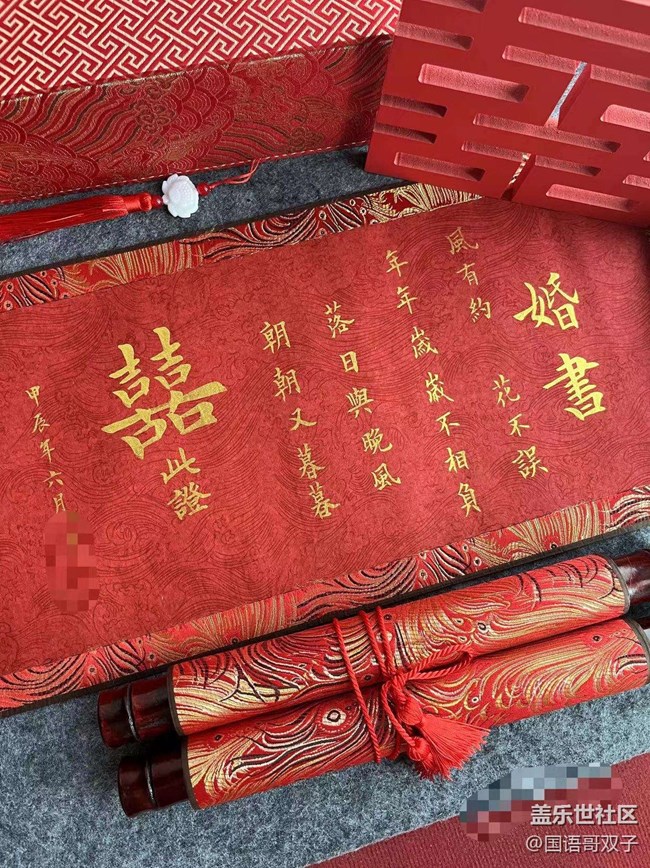 婚書
風有約 花不誤
年年歲歲不相負
落日與晚風
朝朝又暮暮
囍
此證
甲辰年六月
盖乐世社区
@国语哥双子